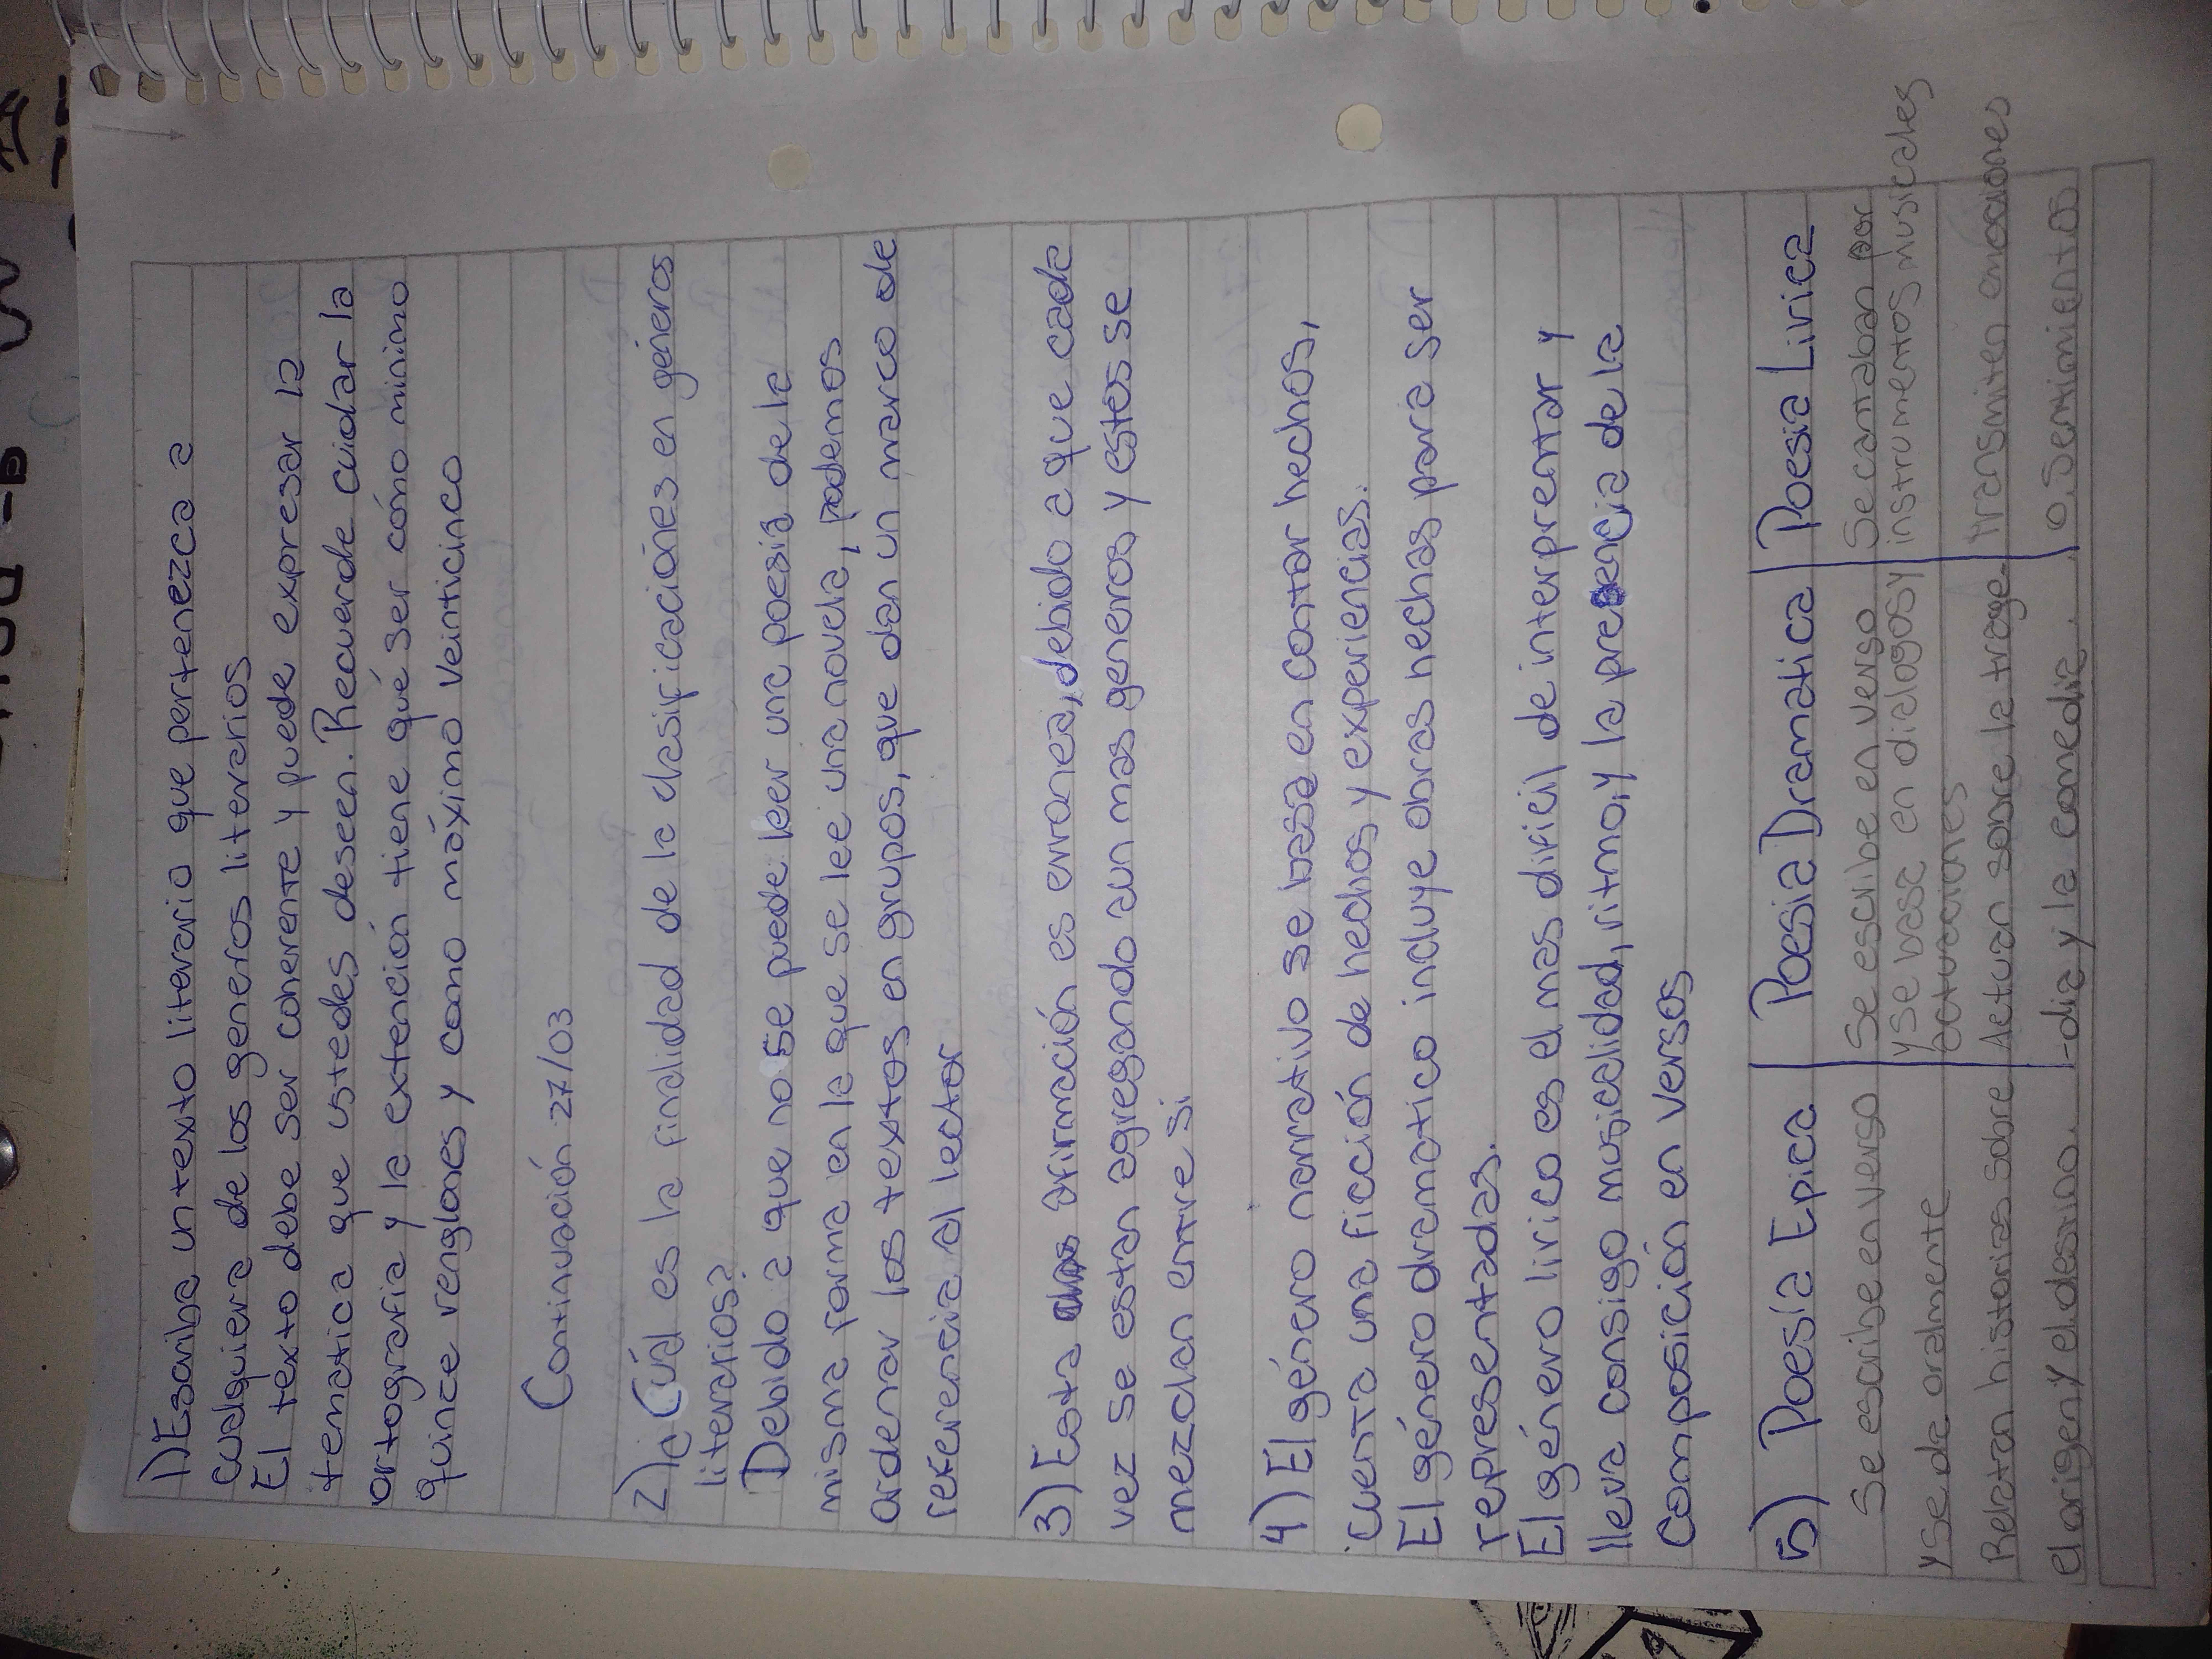 1) Escriba un texto literario que pertenezca a
cualquiera de los generos literarios
El texto debe ser coherente y puede expresar la
tematica que ustedes deseen. Recuerde cuidar la
ortografia y la extención tiene qué ser cómo minimo
quince renglones y como máximo veinticinco
Continuación 27/03
2) ¿Cuál es la finalidad de la clasificaciónes en géneros
literarios?
Debido a que no se puede leer una poesia de la
misma forma en la que se lee una novela, podemos
ordenar los textos en grupos, que dan un marco de
referencia al lector
3) Esta afirmación es erronea, debido a que cada
vez se estan agregando aun mas generos y estos se
mezclan entre si
4) El género narrativo se basa en contar hechos,
cuenta una ficción de hechos y experiencias.
El género dramatico incluye obras hechas para ser
representadas.
El género lirico es el mas dificil de interprentar y
lleva consigo musicalidad, ritmo, y la presencia de la
Composición en versos
5) Poesía Epica | Poesia Dramatica | Poesia Lirica
Se escribe en verso
y se da oralmente
Relatan historias sobre
el origen y el destino.
Se escribe en verso
y se basa en dialogos y
actuaciones
Actuan sobre la trage-
-dia y la comedia.
Se cantaban por
instrumentos musicales
transmiten emociones
o sentimientos